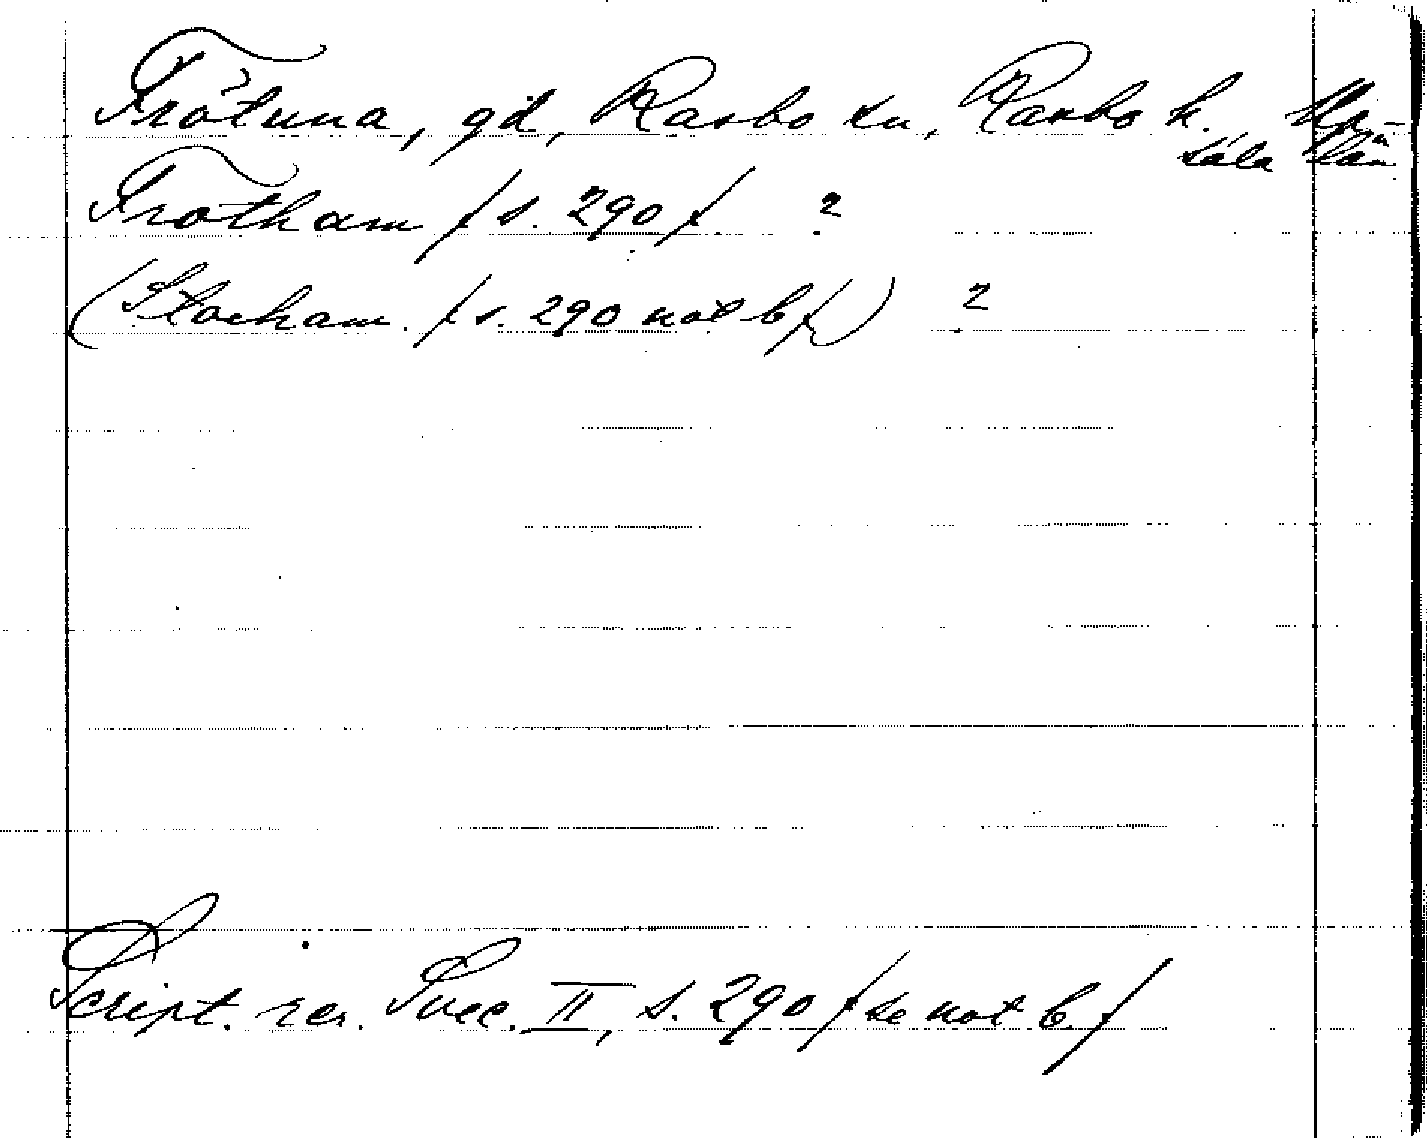 Frötuna, gd, Rasbo sn, Rasbo h. Up-
sala län
Frotham /s. 290/. ?
(Stocham. /s. 290 not b/) ?
Script. rer. Svec. II, s. 290 /se not b./